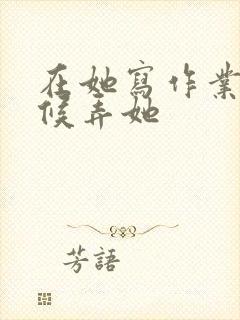 在她寫作業
候弄她
芳語